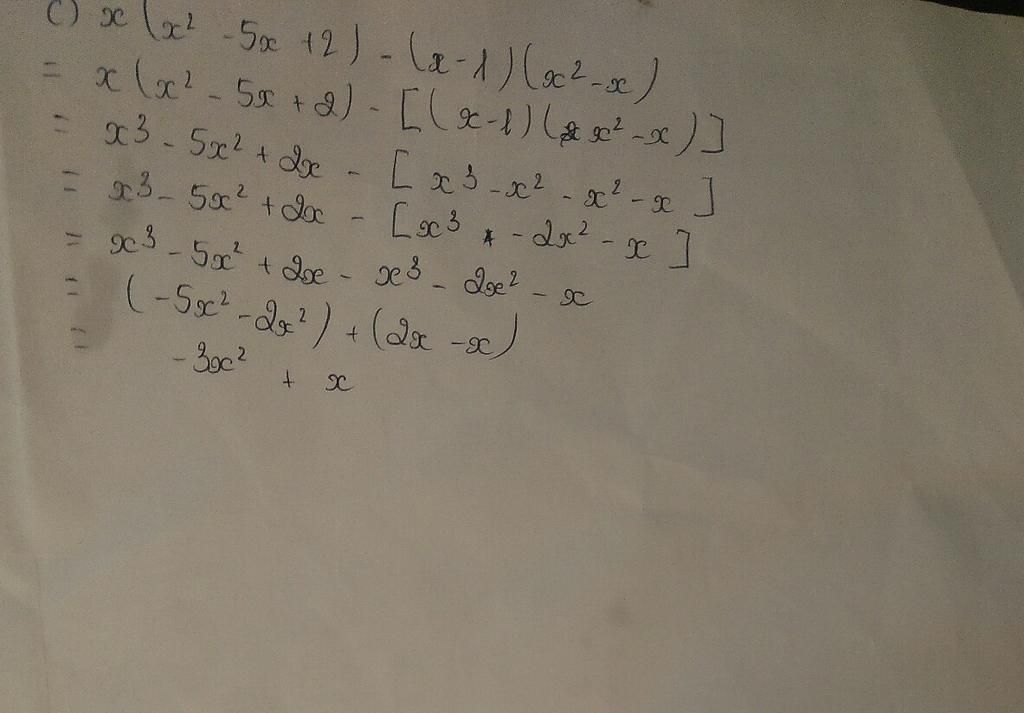 C) x(x² - 5x + 2) - (x - 1)(x² - x)
= x(x² - 5x + 2) - [(x - 1)(x² - x)]
= x³ - 5x² + 2x - [x³ - x² - x² - x]
= x³ - 5x² + 2x - [x³ - 2x² - x]
= x³ - 5x² + 2x - x³ - 2x² - x
= (-5x² - 2x²) + (2x - x)
= -3x² + x